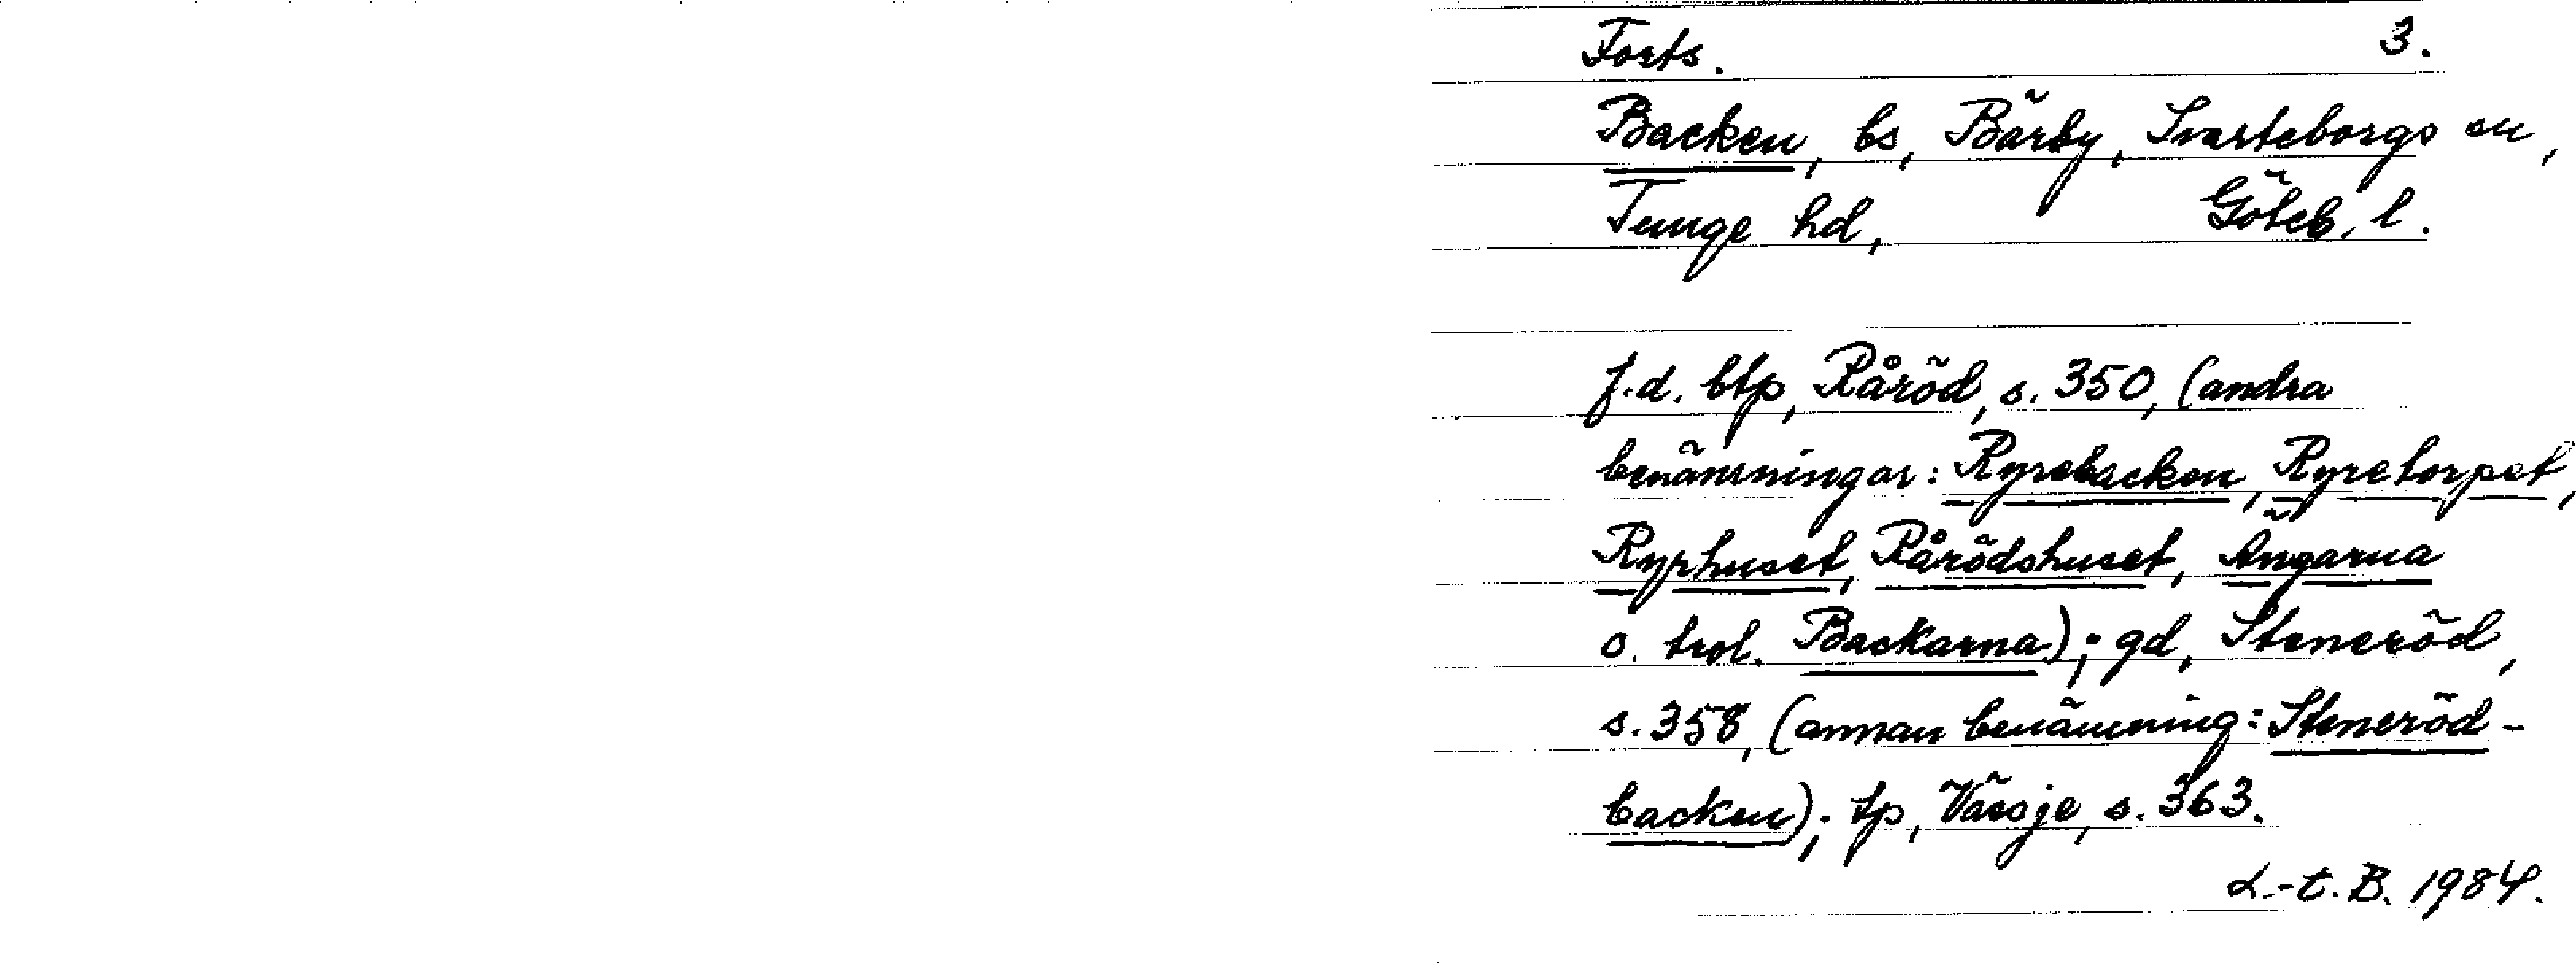 Forts. 3.
Backen, bs, Bärby, Svarteborgs sn,
Tunge hd, Göteb. l.
f.d. btp, Råröd, s. 350, (andra
benämningar: Ryrebacken, Ryretorpet,
Ryrhuset, Rårödshuset, Ängarna
o. trol. Backarna); gd, Steneröd,
s. 358, (annan benämning: Steneröd-
backen); tp, Vässje, s. 363.
L.-t. B. 1984.